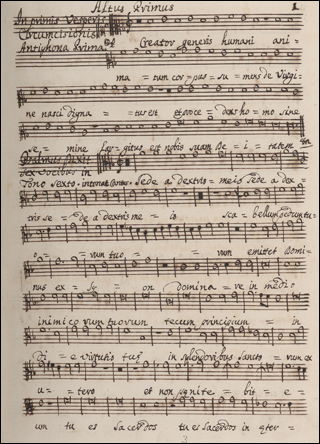 Altus Primus 1
In primis Vesperis
Circumcisionis
Antiphona Prima
Creator generis humani ani=
ma = tum cor=pus= su= mens de Virgi=
ne nasci digna = tus est et proce= dens ho=mo sine
se= mine Lar=gitus est nobis suam De= i= tatem
Psalmus Dixit
Sex vocibus in
Tono Sexto. Sede a dextris = meis Sede a dex=
tris se= de a dextris me= is sca= bellum
vum tuo= = = vum emittet Domi=
nus ex Si= = on domina= re in medi=
inimico rum tuorum tecum principium = in
Di= e virtutis tuę in splendoribus Sancto= rum ex
u= tero et non pęnite= bit= e=
um tu es Sacerdos tu es Sacerdos in ęter=
3